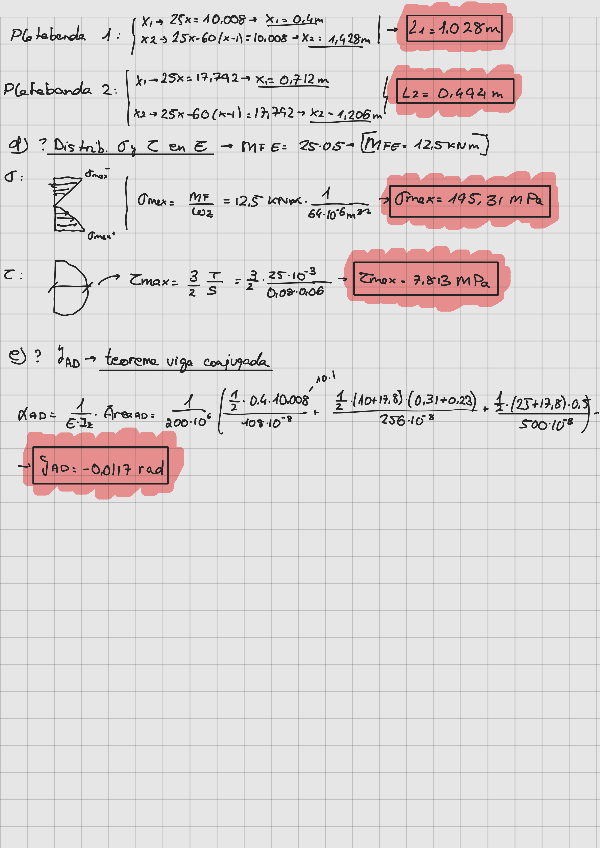 Platabanda 1: { x₁ → 25x = 10.008 → x₁ = 0,4m
x2 → 25x-60(x-1) = 10,008 → x2 = 1,428m → L1 = 1.028m
Platabanda 2: { x₁ → 25x = 17,792 → x₁ = 0,712 m
x2 → 25x-60(x-1) = 17,792 → x2 = 1,206m L2 = 0,494 m
d) ? Distrib. σ y τ en E → MFE = 25·0.5 → [MFE = 12,5 kNm]
σ: σmax⁻ σmax⁺ σmax = MF/ω2 = 12,5 kNm · 1/64·10⁻⁶m³ → σmax = 195,31 MPa
τ: → τmax = 3/2 T/S = 3/2 · 25·10⁻³/0,08·0,06 → τmax = 7,813 MPa
e) ? φAD → teorema viga conjugada
αAD = 1/E·Iz · ÁreaAD = 1/200·10⁶ ( 1/2·0.4·10.008/108·10⁻⁸ + 1/2·(10+17,8)(0,31+0,23)/256·10⁻⁸ + 1/2·(25+17,8)·0,5/500·10⁻⁸ ) -
10.1
→ φAD = -0,0117 rad